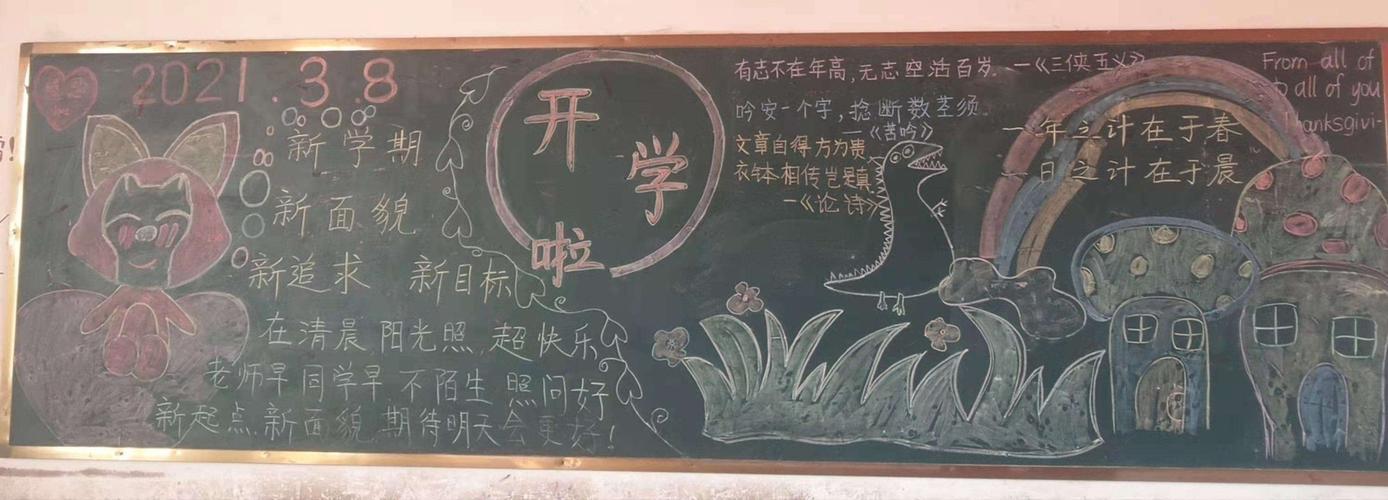 2021.3.8
新学期
新面貌
新追求 新目标
在清晨 阳光照 超快乐
老师早 同学早 不陌生 照问好
新起点 新面貌 期待明天会更好!
开
学
啦
有志不在年高,无志空活百岁. —《三侠五义》
吟安一个字,捻断数茎须.
—《苦吟》
文章自得方为贵,
衣钵相传岂是真.
—《论诗》
一年之计在于春
一日之计在于晨
From all of
to all of you
Thanksgivi-